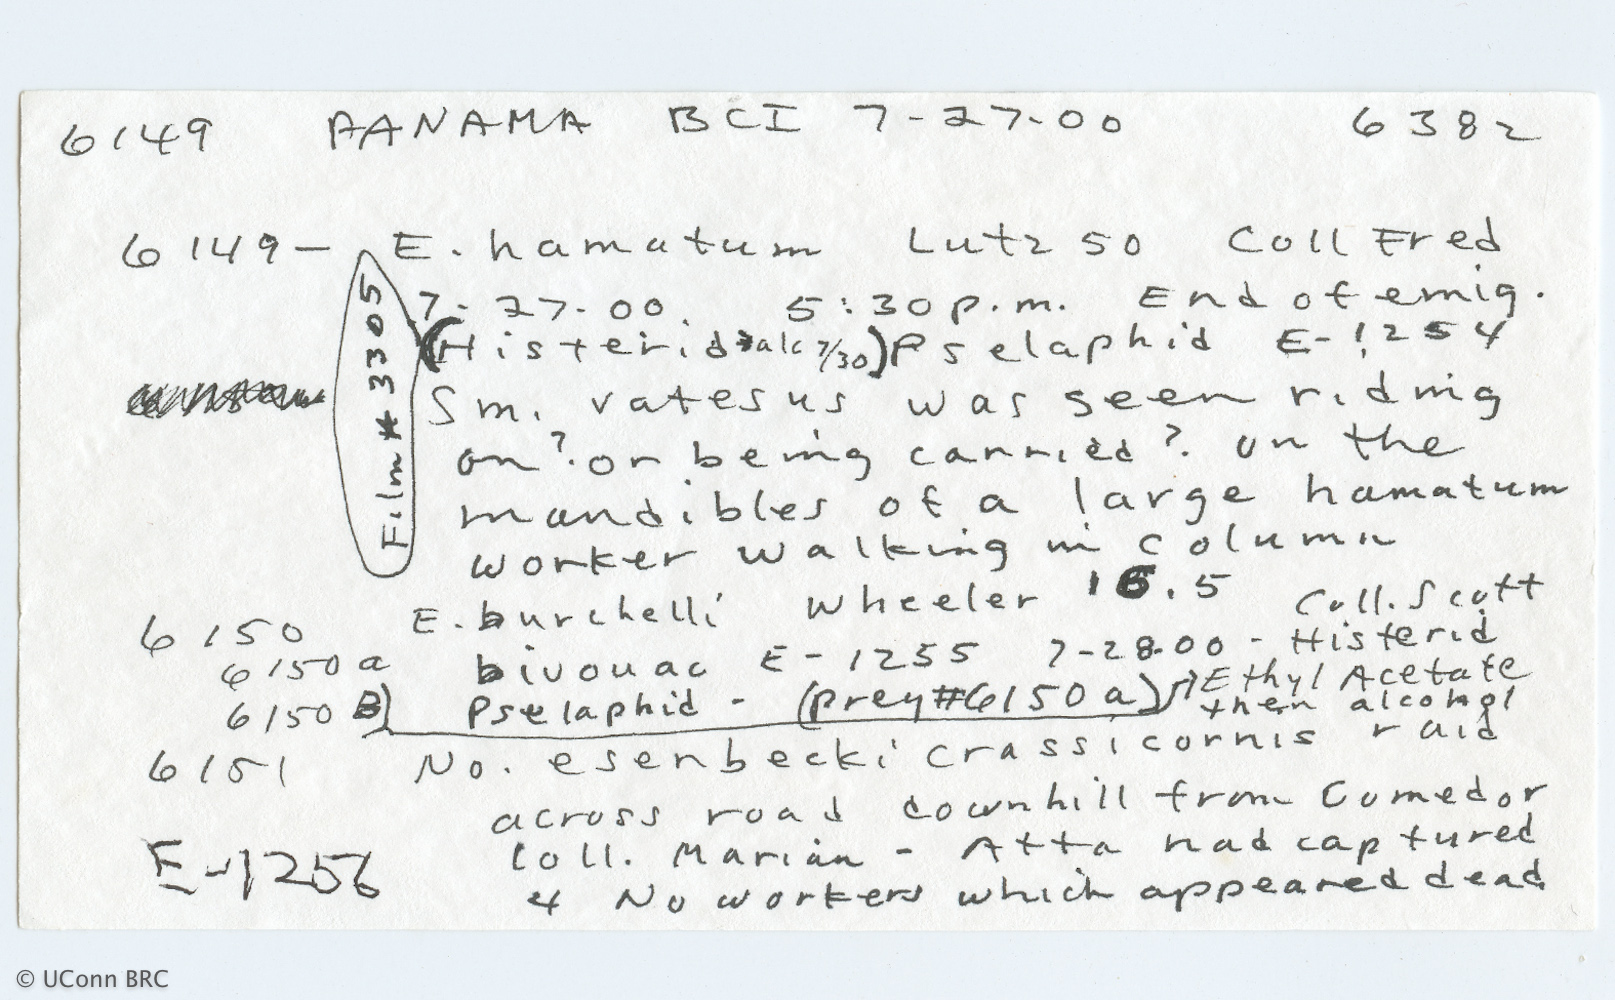 6149 PANAMA BCI 7-27-00 6382
6149- E. hamatum Lutz 50 Coll Fred
7-27-00. 5:30 p.m. End of emig.
(Histerid→alc 7/30) Pselaphid E-1254
Sm. vatesus was seen riding
on? or being carried? on the
mandibles of a large hamatum
worker walking in column
Film # 3305
6150 E. burchelli Wheeler 16.5 Coll. Scott
6150a bivouac E-1255 7-28-00 - Histerid
6150B) Pselaphid - (prey #6150a) Ethyl Acetate
then alcohol
6151 No. esenbecki crassicornis raid
across road downhill from Comedor
Coll. Marian - Atta had captured
E-1256
4 No workers which appeared dead
© UConn BRC